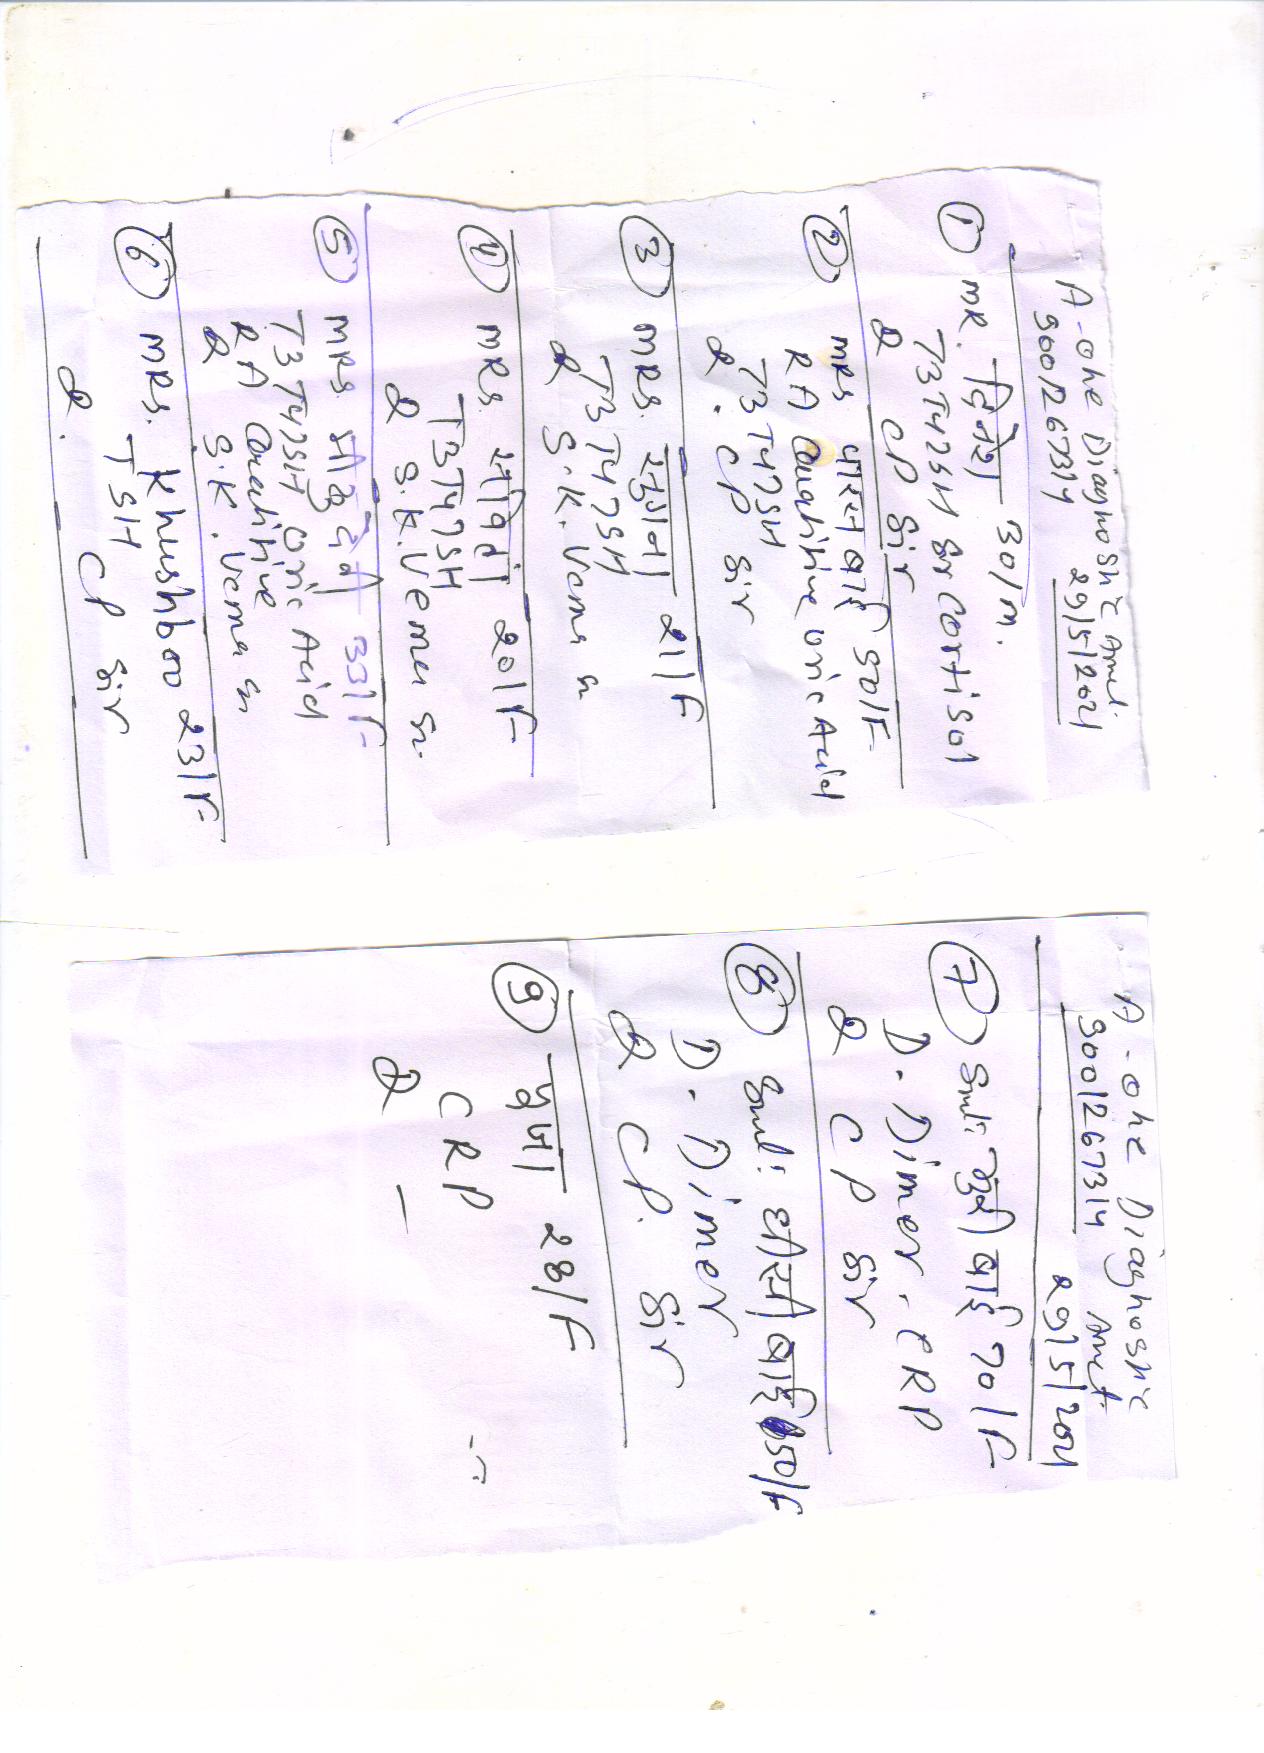 A-one Diagnostic Amet
9001267314 29/5/2021
① MR. किशोर 30/M.
T3T4TSH Sr Cortisol
& CP Sir
② MRS पारस बाई 50/F
RA Quatitive Uric Acid
T3T4TSH
&. CP Sir
③ MRS. 21/F
T3T4TSH
& S.K. Verma Sr
④ MRS. 20/F
T3T4TSH
& S.K. Verma Sr.
⑤ MRS 33/F
T3T4TSH Uric Acid
RA Quatitive
& S.K. Verma Sr
⑥ MRS. Khushboo 23/F
TSH
&. CP Sir
A-one Diagnostic
9001267314 Amet
29/5/2021
⑦ Smt: बाई 70/F
D. Dimer, CRP
& CP Sir
⑧ Smt: बाई 50/F
D. Dimer
& CP. Sir
⑨ 28/F
CRP
& —